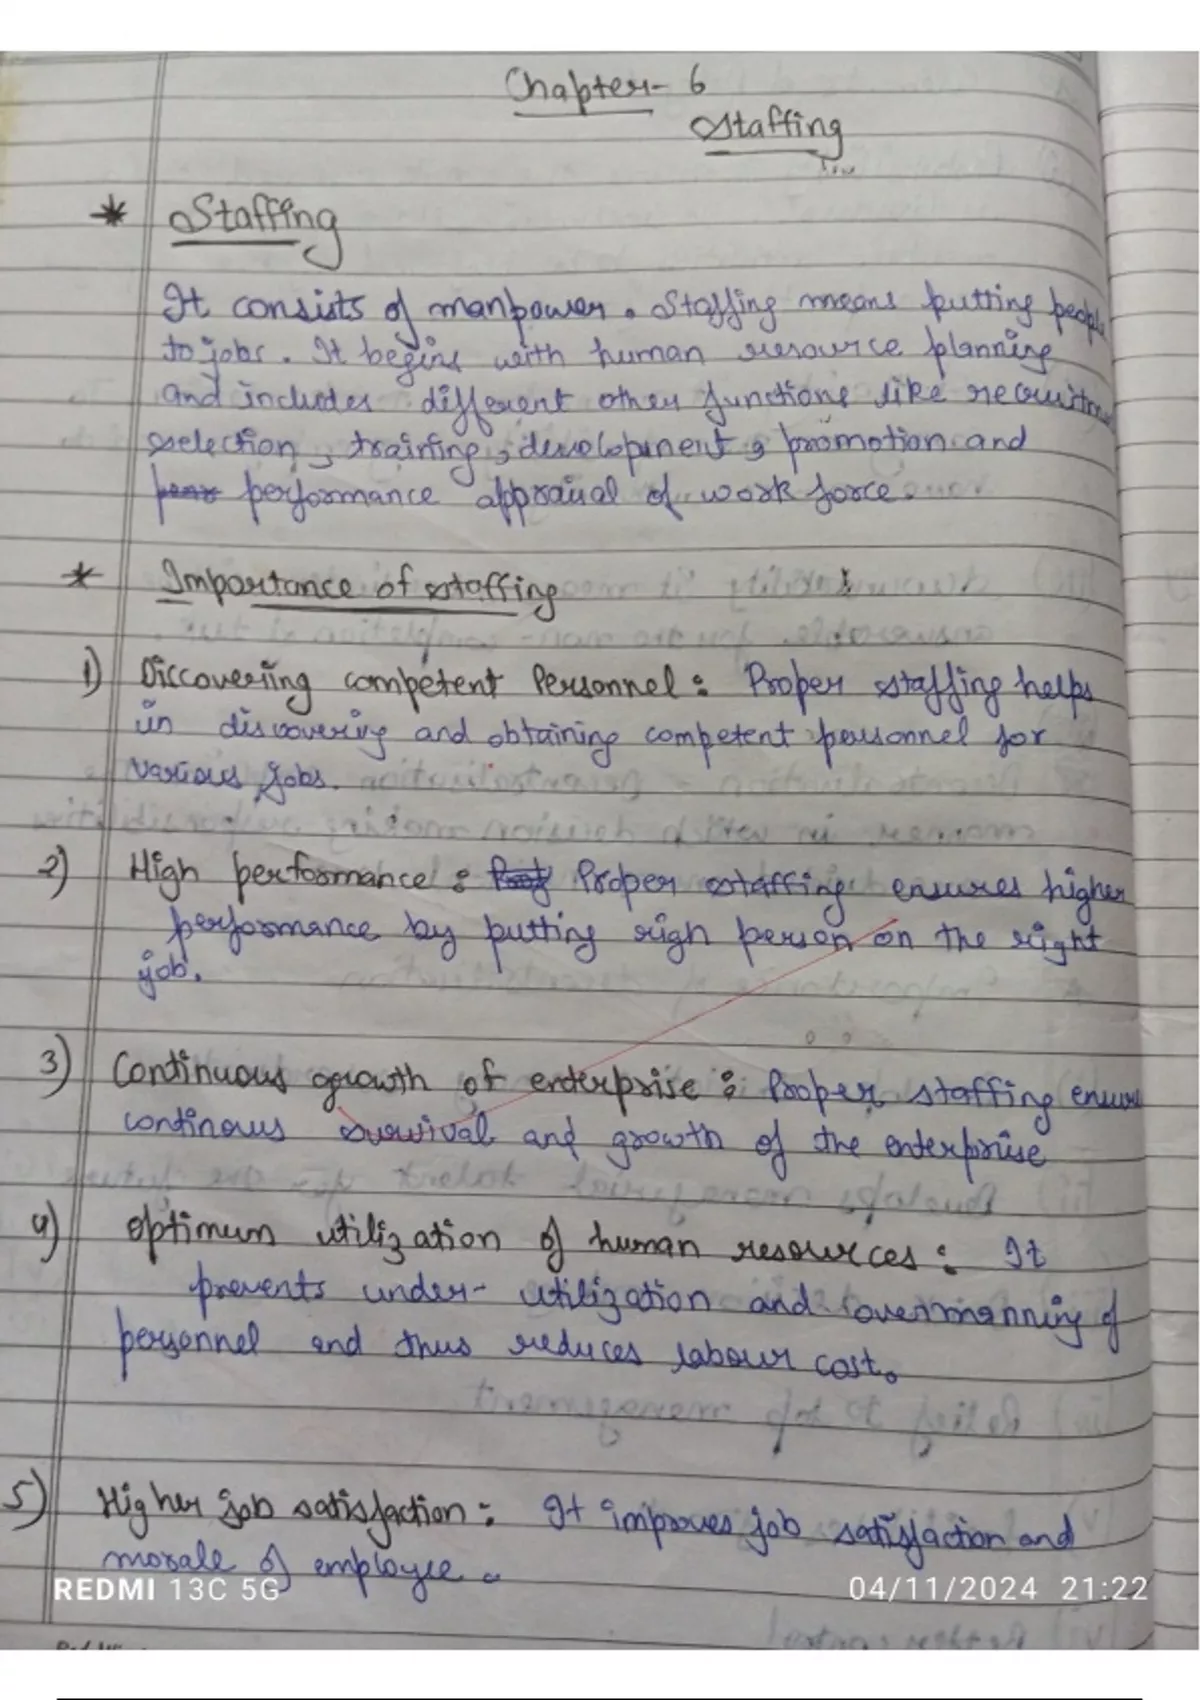 Chapter- 6
Staffing
* Staffing
It consists of manpower. Staffing means putting people
to jobs. It begins with human resource planning
and includes different other functions like recruitm
selection, training, development, promotion and
performance appraisal of work force.
* Importance of staffing
1) Discovering competent Personnel: Proper staffing helps
in discovering and obtaining competent personnel for
various jobs.
2) High performance: Proper staffing ensures higher
performance by putting righ person on the right
job.
3) Continuous growth of enterprise: Proper staffing ensure
continous survival and growth of the enterprise
4) Optimum utilization of human resources: It
prevents under-utilization and overmanning of
personnel and thus reduces labour cost.
5) Higher job satisfaction: It improves job satisfaction and
morale of employee.
REDMI 13C 5G 04/11/2024 21:22